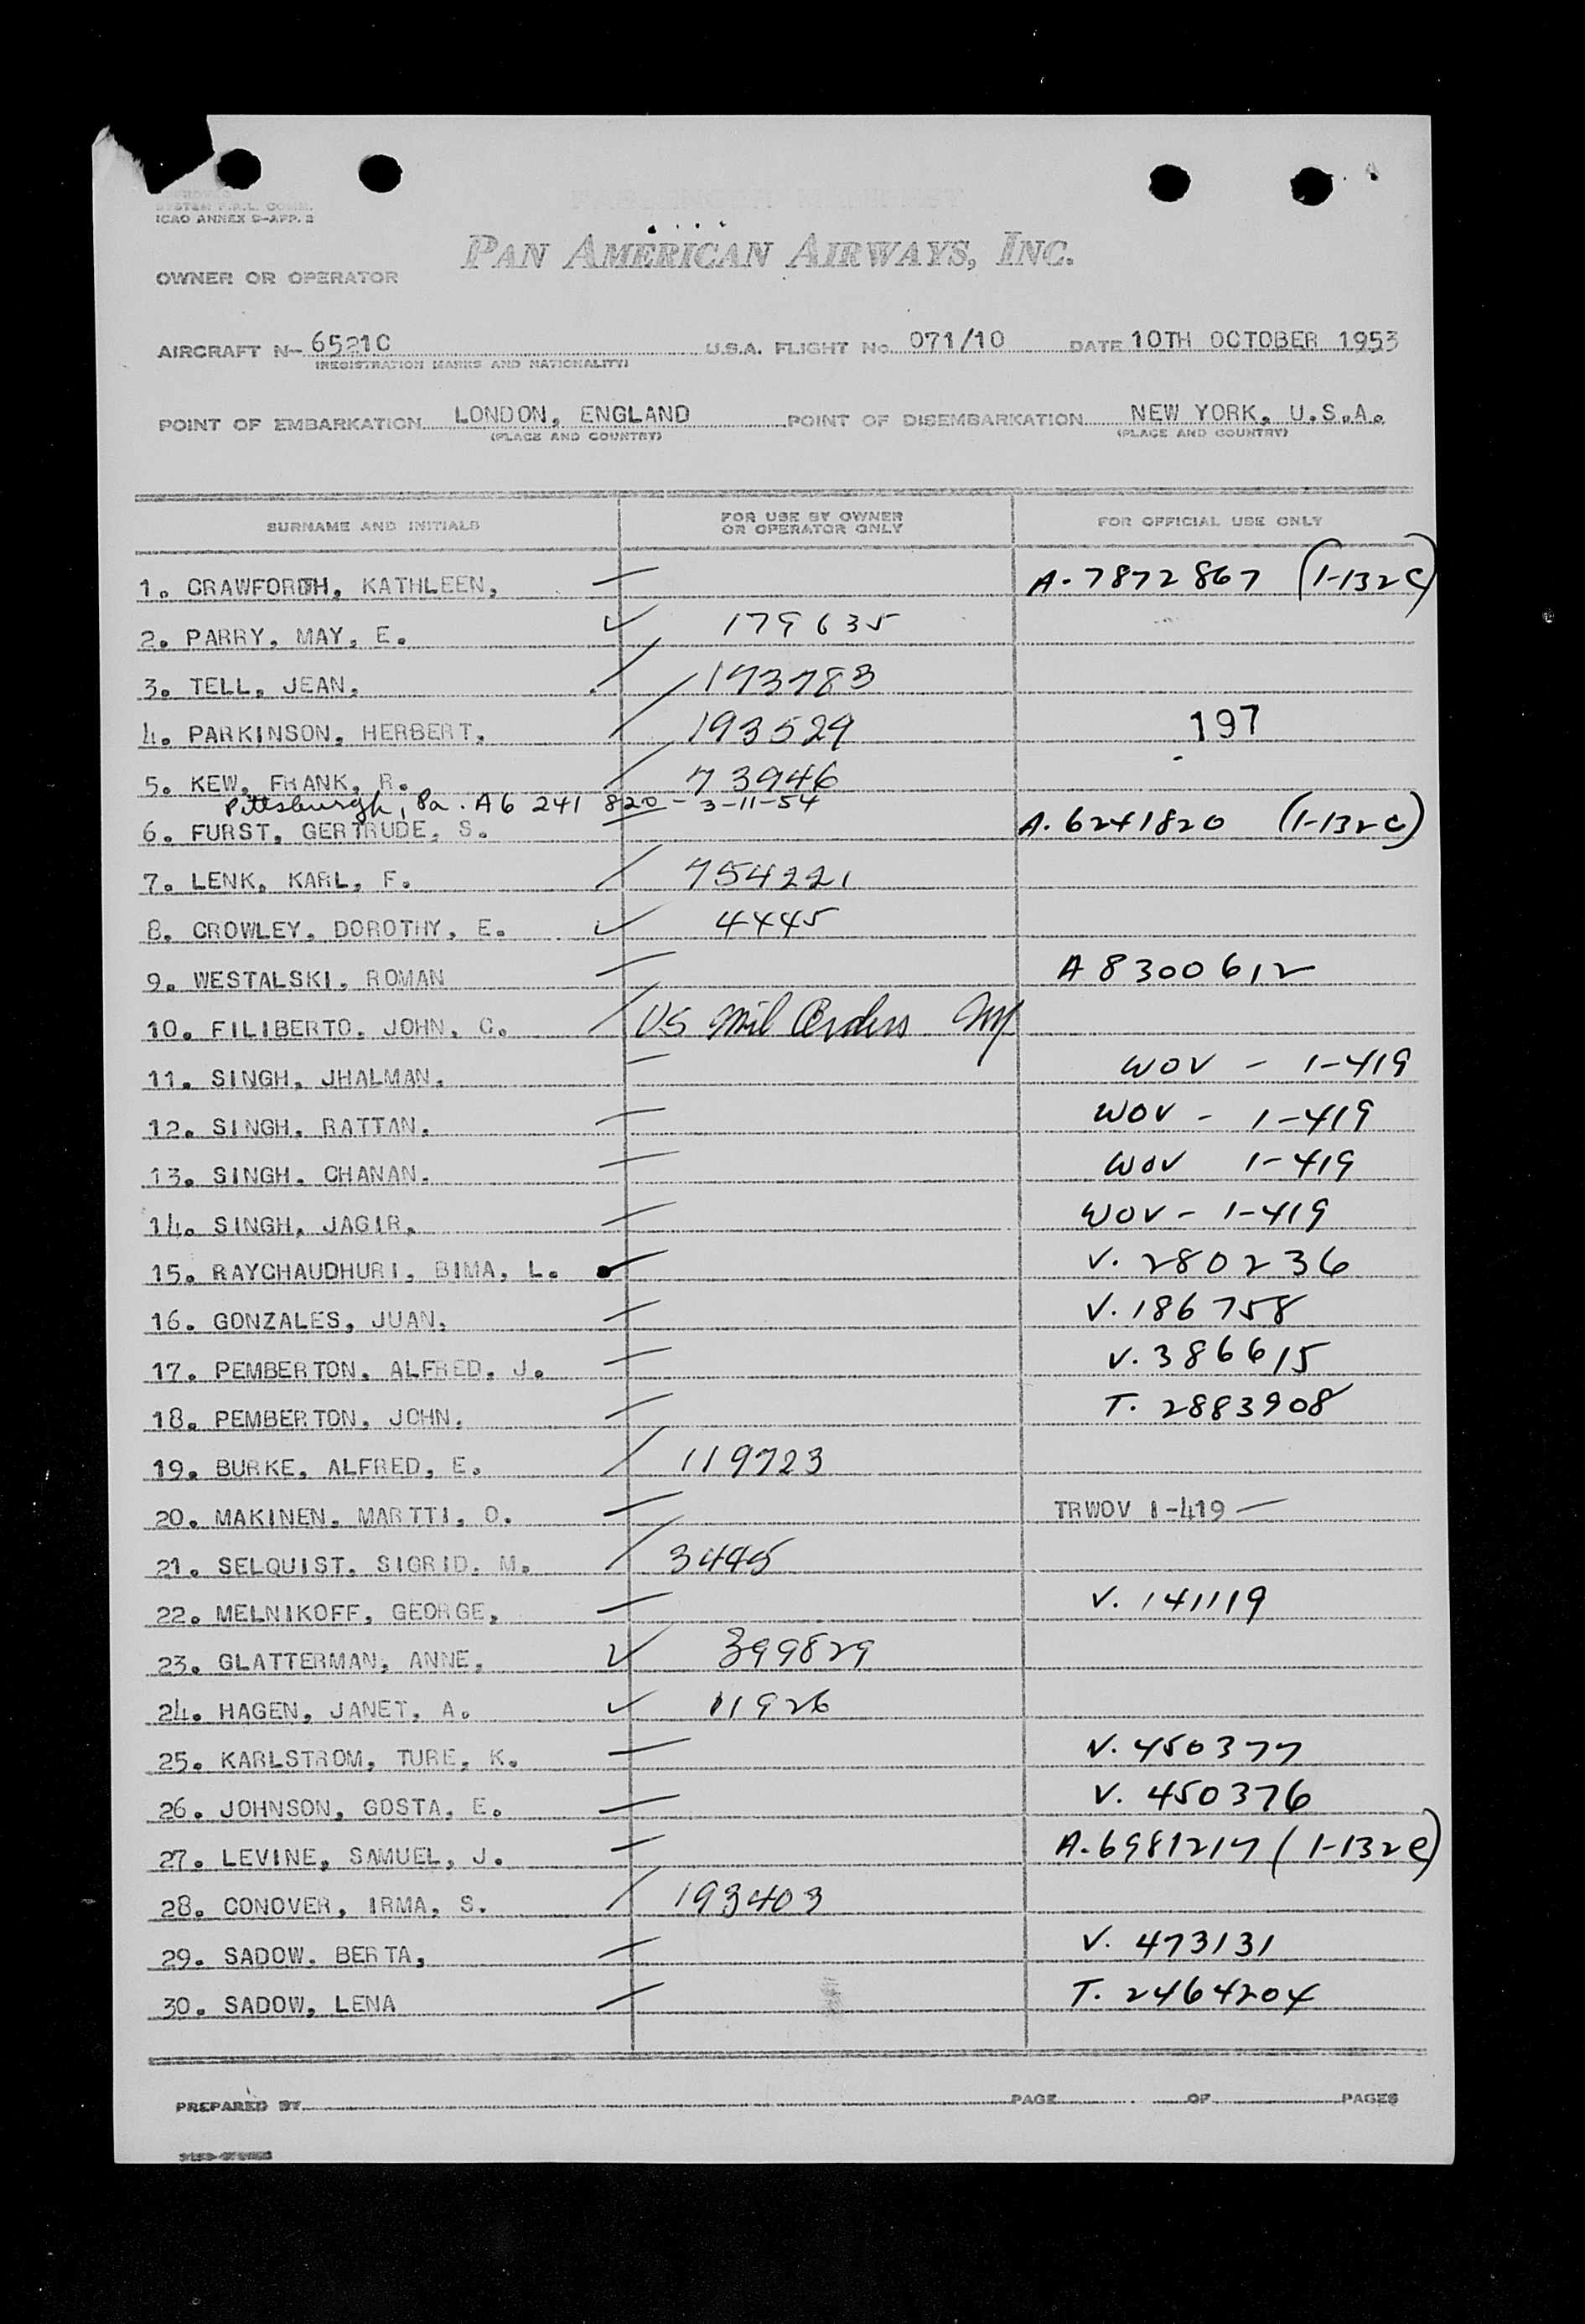 SYSTEM P.A.L. COMM.
ICAO ANNEX 9-APP. 2
PAN AMERICAN AIRWAYS, INC.
OWNER OR OPERATOR
AIRCRAFT N- 6521C U.S.A. FLIGHT No. 071/10 DATE 10TH OCTOBER 1953
(REGISTRATION MARKS AND NATIONALITY)
POINT OF EMBARKATION LONDON, ENGLAND POINT OF DISEMBARKATION NEW YORK, U.S.A.
(PLACE AND COUNTRY) (PLACE AND COUNTRY)
SURNAME AND INITIALS FOR USE BY OWNER OR OPERATOR ONLY FOR OFFICIAL USE ONLY
1. CRAWFORTH, KATHLEEN, A-7872867 (1-132C)
2. PARRY, MAY, E. 179635
3. TELL, JEAN, 173783
4. PARKINSON, HERBERT, 193529 197
5. KEW, FRANK, R. 73946
Pittsburgh, Pa. A6 241 820 - 3-11-54
6. FURST, GERTRUDE, S. A. 6241820 (1-132C)
7. LENK, KARL, F. 754221
8. CROWLEY, DOROTHY, E. 4445
9. WESTALSKI, ROMAN A 8300612
10. FILIBERTO, JOHN, C. US Mil Orders
11. SINGH, JHALMAN, WOV - 1-419
12. SINGH, RATTAN, WOV - 1-419
13. SINGH, CHANAN, WOV 1-419
14. SINGH, JAGIR, WOV - 1-419
15. RAYCHAUDHURI, BIMA, L. V. 280236
16. GONZALES, JUAN, V. 186758
17. PEMBERTON, ALFRED, J. V. 386615
18. PEMBERTON, JOHN, T. 2883908
19. BURKE, ALFRED, E. 119723
20. MAKINEN, MARTTI, O. TRWOV 1-419
21. SELQUIST, SIGRID, M. 3445
22. MELNIKOFF, GEORGE, V. 141119
23. GLATTERMAN, ANNE, 399829
24. HAGEN, JANET, A. 11926
25. KARLSTROM, TURE, K. V. 450377
26. JOHNSON, GOSTA, E. V. 450376
27. LEVINE, SAMUEL, J. A-6981217 (1-132C)
28. CONOVER, IRMA, S. 193403
29. SADOW, BERTA, V. 473131
30. SADOW, LENA T. 2464204
PREPARED BY PAGE OF PAGES